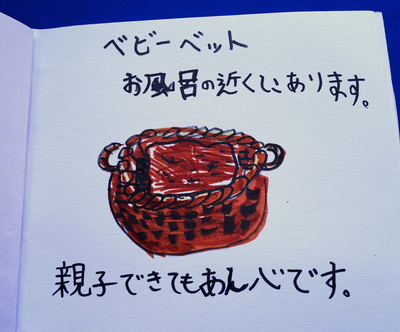 ベビーベット
お風呂の近くにあります。
親子できてもあん心です。